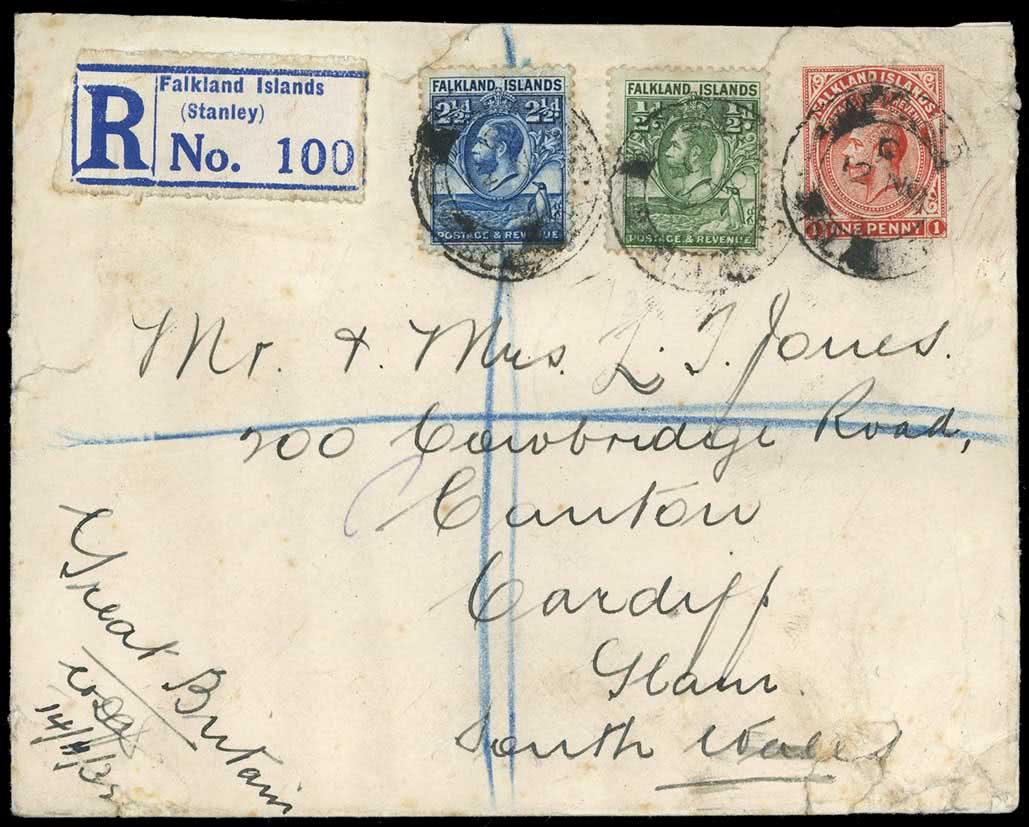 R Falkland Islands
(Stanley)
No. 100
FALKLAND ISLANDS
2½d 2½d
POSTAGE & REVENUE
FALKLAND ISLANDS
½d ½d
POSTAGE & REVENUE
FALKLAND ISLANDS
1 ONE PENNY 1
Mr. & Mrs. L. J. Jones.
200 Cowbridge Road,
Canton
Cardiff
Glam.
South Wales
Great Britain